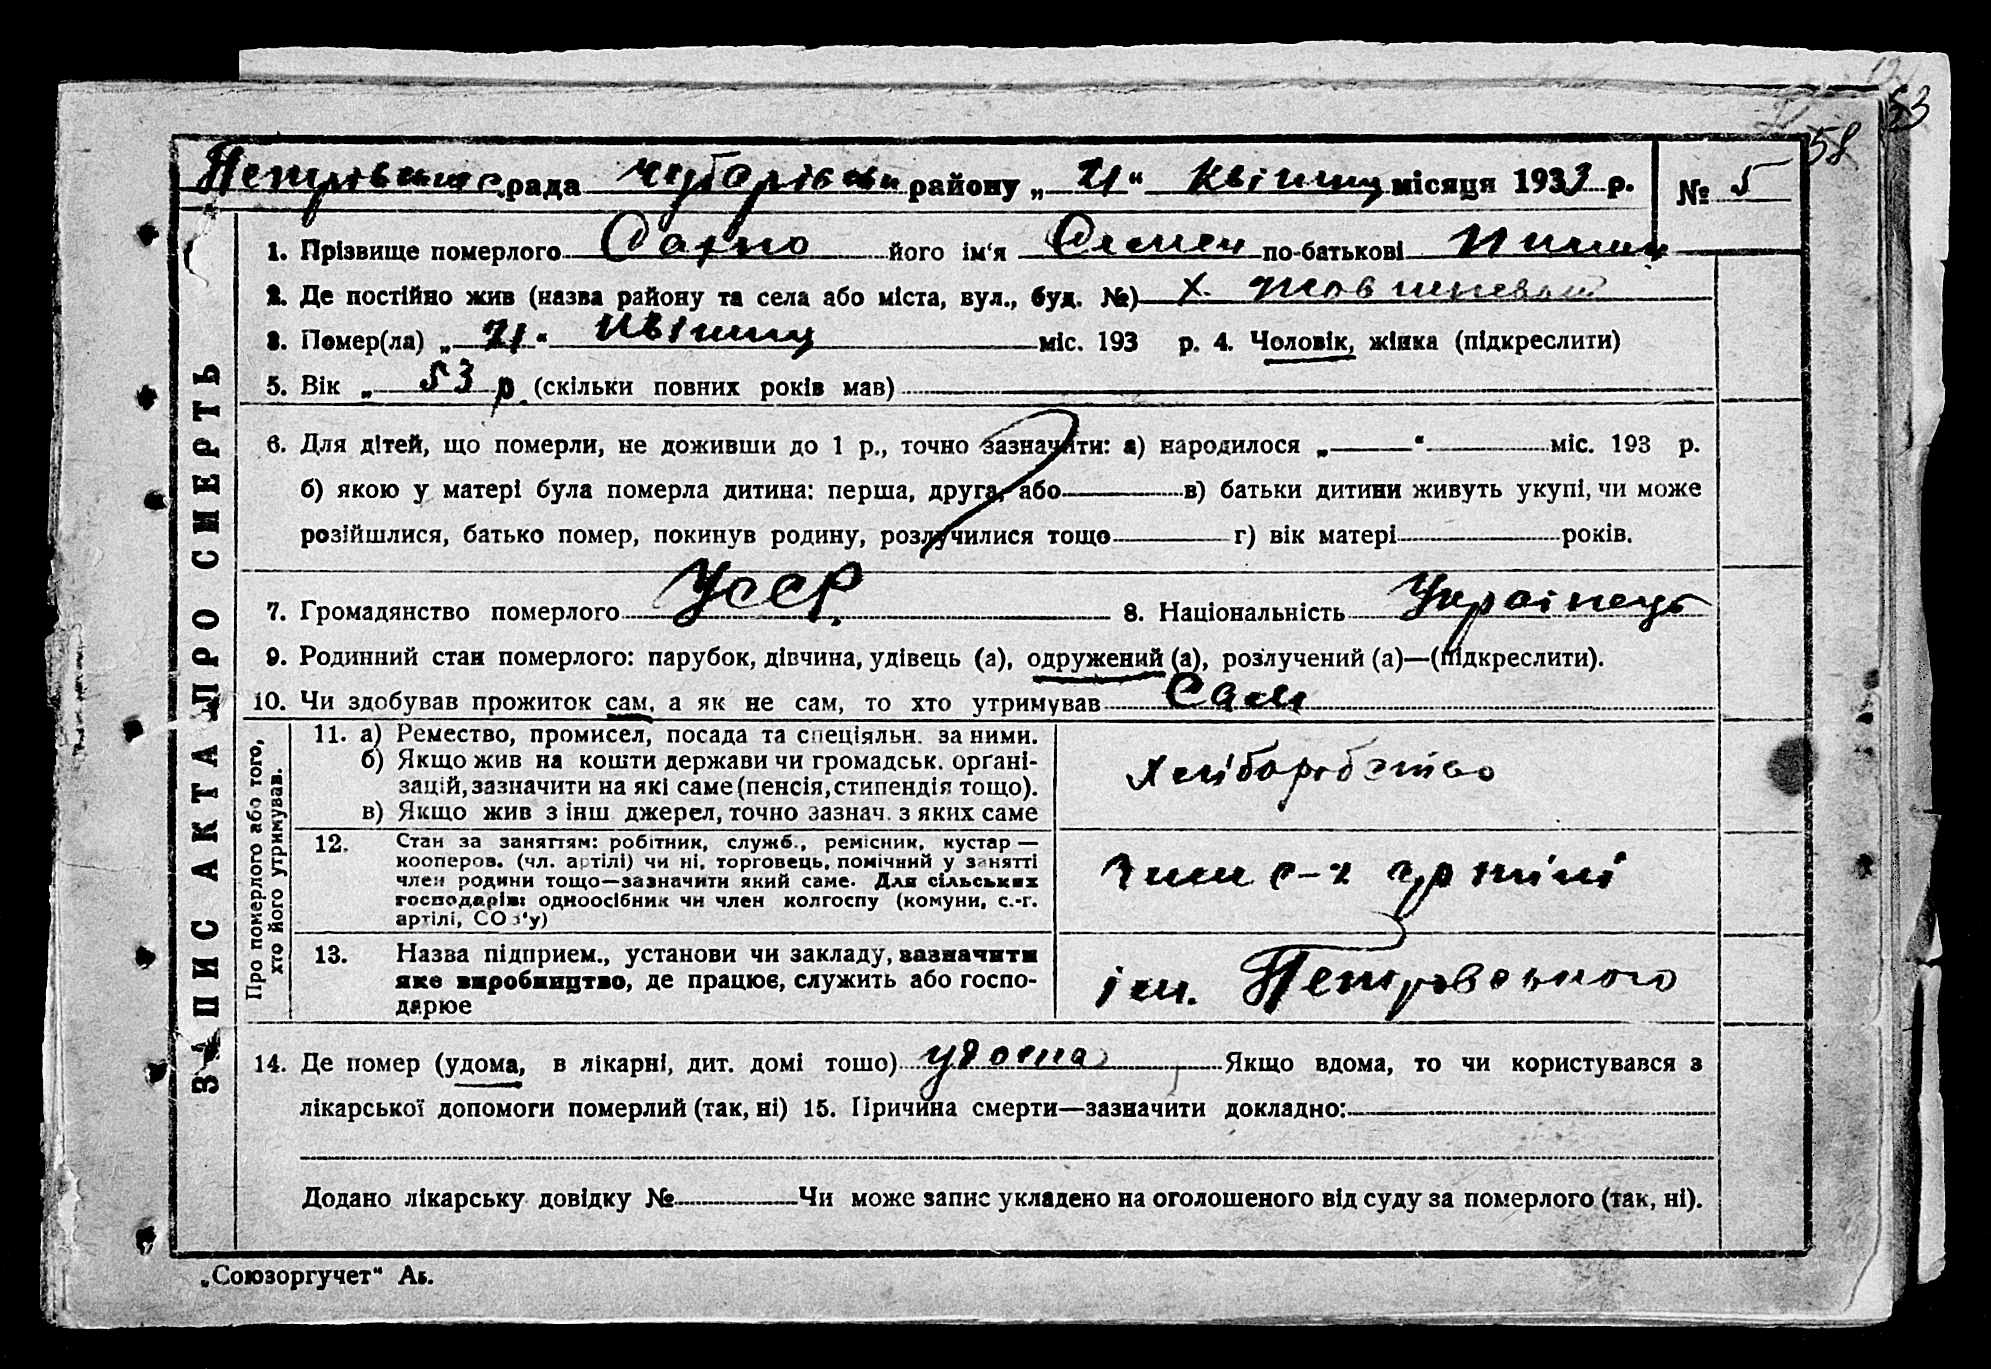 53
58
рада Чубарівськ району „ 21 “ Квітня місяця 1933 р. № 5
1. Прізвище померлого його ім‘я Семен по-батькові
2. Де постійно жив (назва району та села або міста, вул., буд. №) х.
3. Помер(ла) „ 21 “ Квітня міс. 193 р. 4. Чоловік, жінка (підкреслити)
5. Вік „ 53 р. (скільки повних років мав)
6. Для дітей, що померли, не доживши до 1 р., точно зазначити: а) народилося „ “ міс. 193 р.
б) якою у матері була померла дитина: перша, друга, або в) батьки дитини живуть укупі, чи може
розійшлися, батько помер, покинув родину, розлучилися тощо г) вік матері років.
7. Громадянство померлого УССР. 8. Національність Українець
9. Родинний стан померлого: парубок, дівчина, удівець (а), одружений (а), розлучений (а)—(підкреслити).
10. Чи здобував прожиток сам, а як не сам, то хто утримував Сам
ЗАПИС АКТА ПРО СМЕРТЬ
Про померлого або того,
хто його утримував.
11. а) Ремество, промисел, посада та спеціяльн. за ними.
б) Якщо жив на кошти держави чи громадськ. орґані-
зацій, зазначити на які саме (пенсія, стипендія тощо).
в) Якщо жив з інш джерел, точно зазнач. з яких саме
Хліборобство
12. Стан за заняттям: робітник, служб., ремісник, кустар —
кооперов. (чл. артілі) чи ні, торговець, помічний у занятті
член родини тощо—зазначити який саме. Для сільських
господарів: одноосібник чи член колгоспу (комуни, с.-г.
артілі, СОЗ‘у)
Член с-г артілі
13. Назва підприєм., установи чи закладу, зазначити
яке виробництво, де працює, служить або госпо-
дарює
ім. Петровського
14. Де помер (удома, в лікарні, дит. домі тошо) удома Якщо вдома, то чи користувався з
лікарської допомоги померлий (так, ні) 15. Причина смерти—зазначити докладно:
Додано лікарську довідку № Чи може запис укладено на оголошеного від суду за померлого (так, ні).
„Союзоргучет“ Аг.